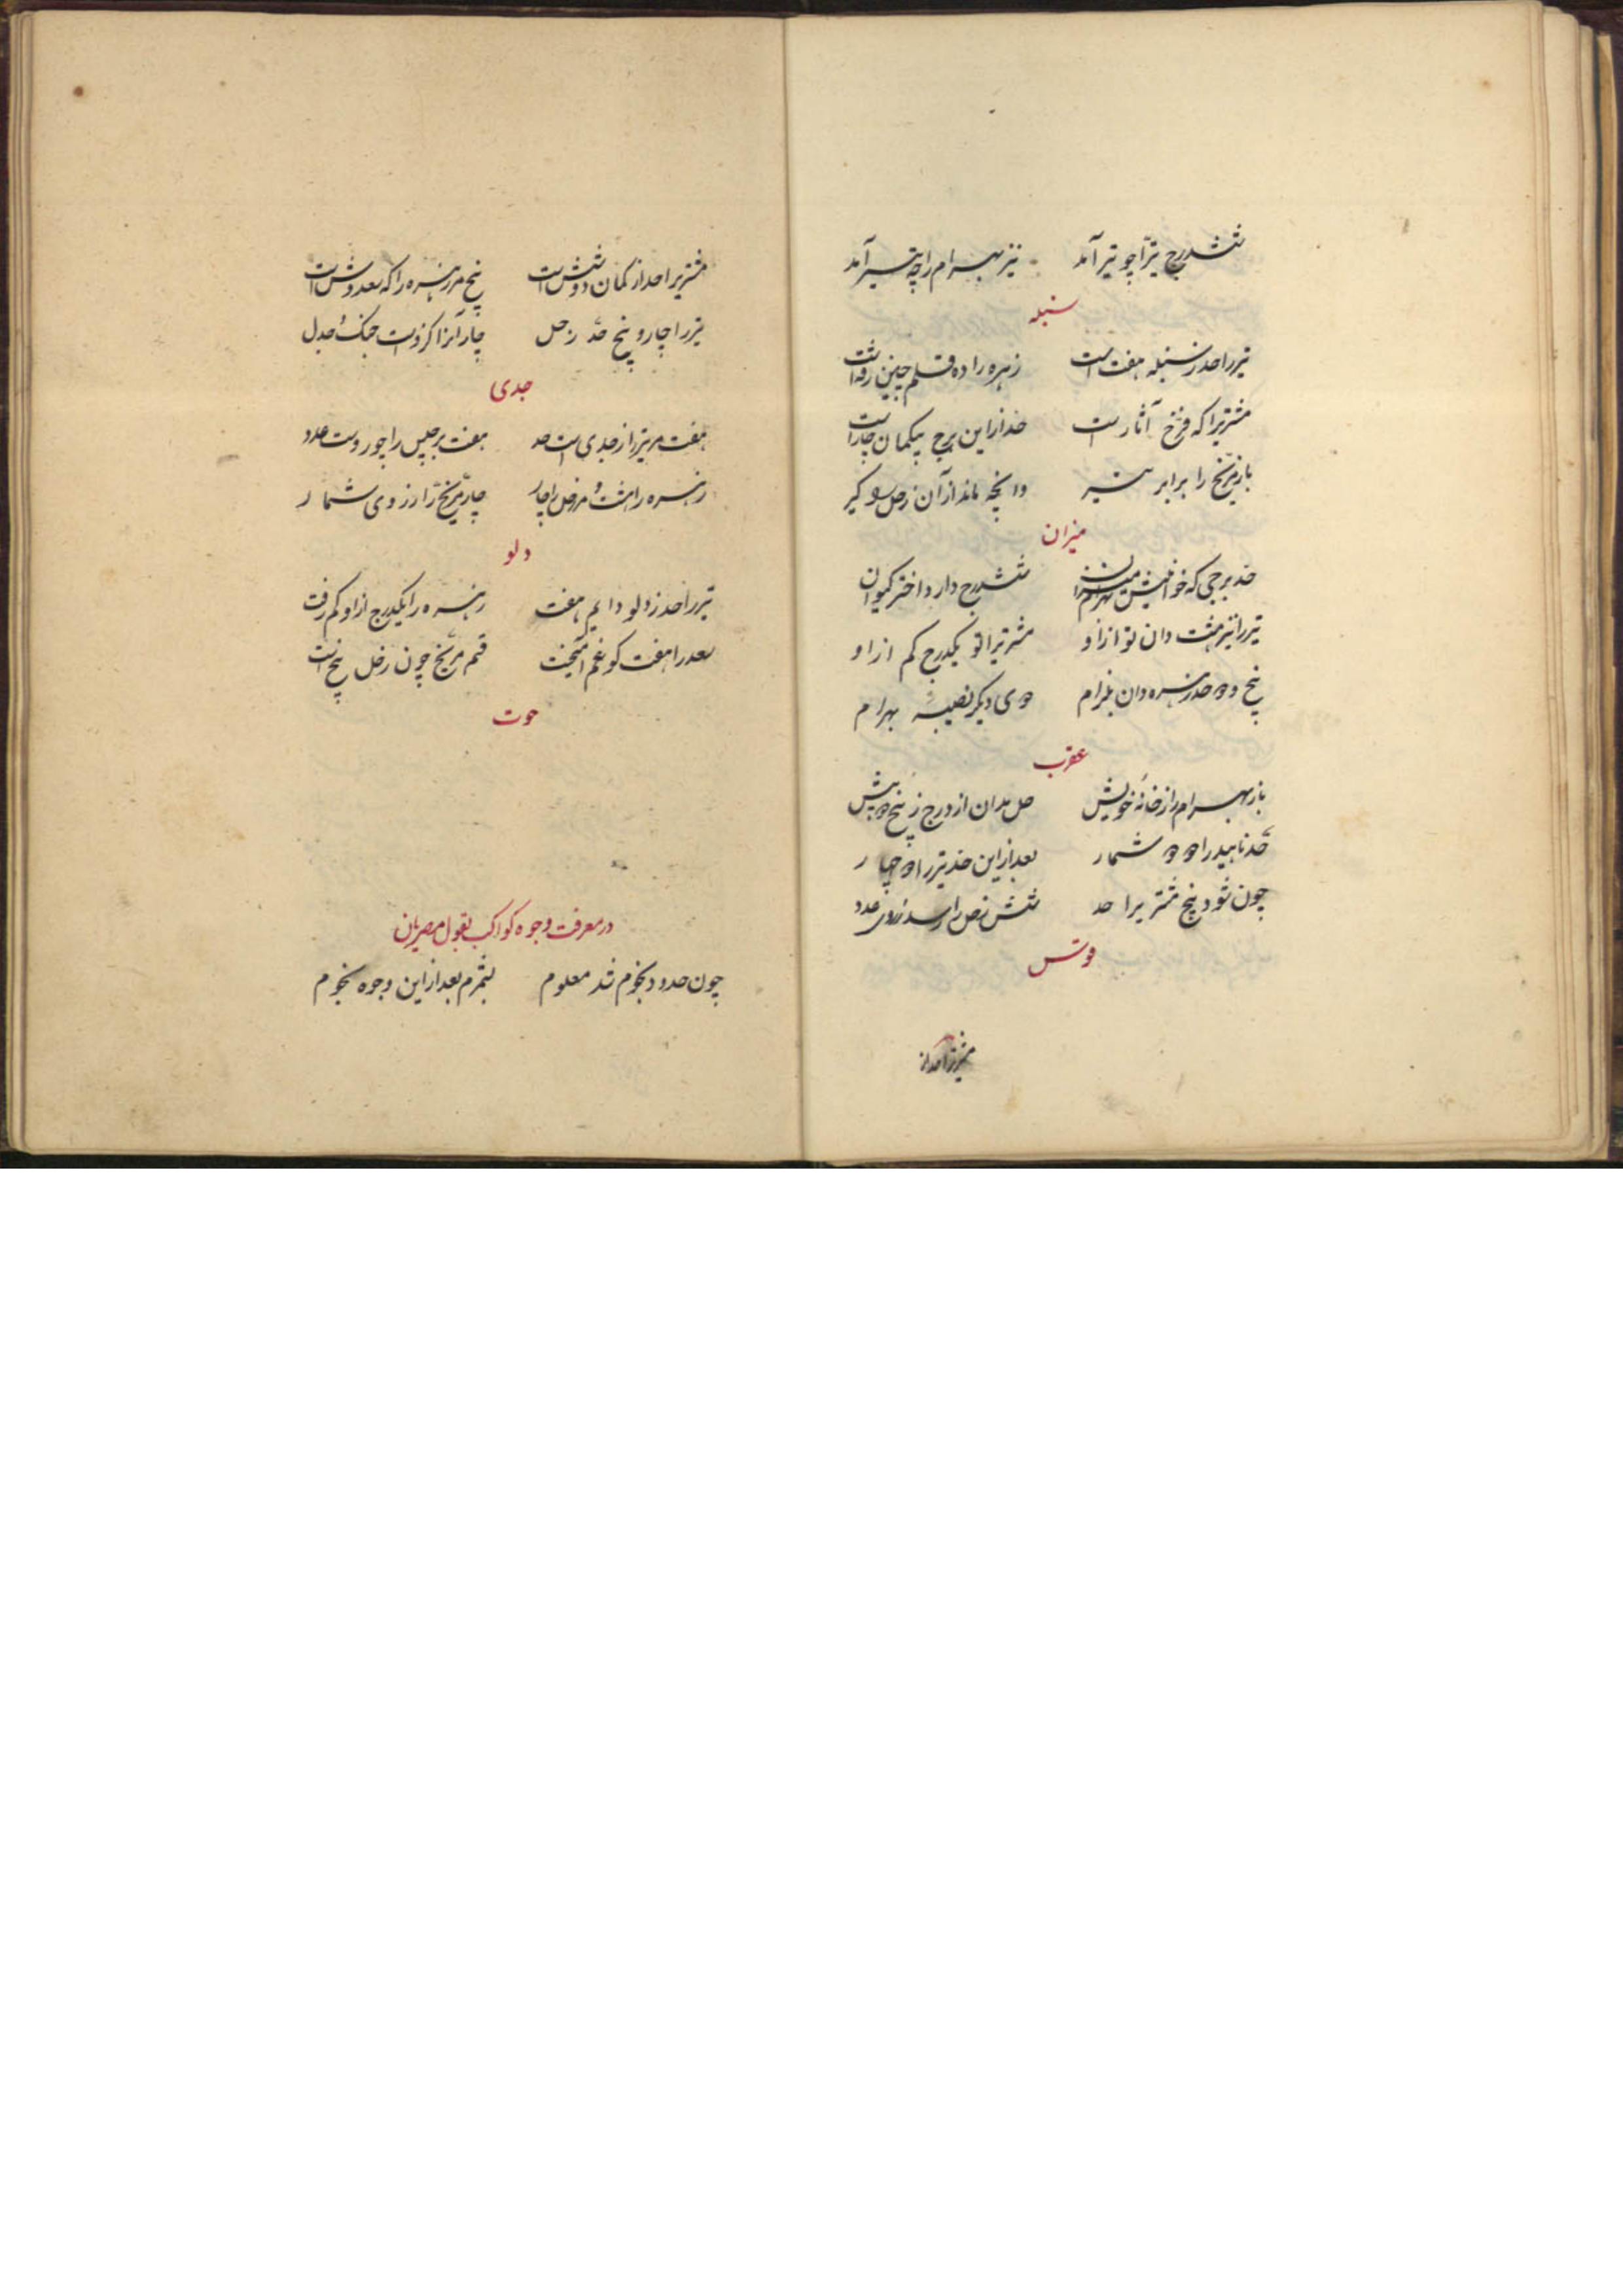 ششدرج تیر را چو تیر آمد نیز بهرام را چه تیر آمد
سنبله
تیر را حد ز سنبله هفت است زهره را ده قلم چنین رفته است
مشتریرا که فرخ آثار است حد از این برج بیگمان چار است
باز مریخ را برابر تیر وانچه ماند از آن زحل گیر
میزان
حد برجی که خوانیش میزان ششدرج دارد اختر کیوان
تیر را نیز هشت دان تو از او مشتریرا تو یکدرج کم از او
پنج و دو حد زهره دان بلرام دوی دیگر نصیب بهرام
عقرب
باز بهرام را ز خانه خویش حل بدان از درج ز پنج دو بیش
حد ناهید را دو دو شمار بعد از این حد تیر را دو چهار
چون شود پنج مشتریرا حد شش زحل را رسد ز روی عدد
قوس
مشتریرا حد از
مشتریرا حد از کمان دو شش است پنج مر زهره را که سعد وش است
تیر را چار و پنج حد زحل چار آنرا کزوست جنگ و جدل
جدی
هفت مر تیر را ز جدی است حد هفت برجیس را چو روست عدد
زهره را هشت و مر زحل را چار چار مریخ را ز روی شمار
دلو
تیر را حد ز دلو دایم هفت زهره را یکدرج از او کم رفت
سعد را هفت کو غم انجیت قسم مریخ چون زحل پنج است
حوت
در معرفت وجوه کواکب بقول مصریان
چون حدود نجوم شد معلوم بشمرم بعد از این وجوه نجوم